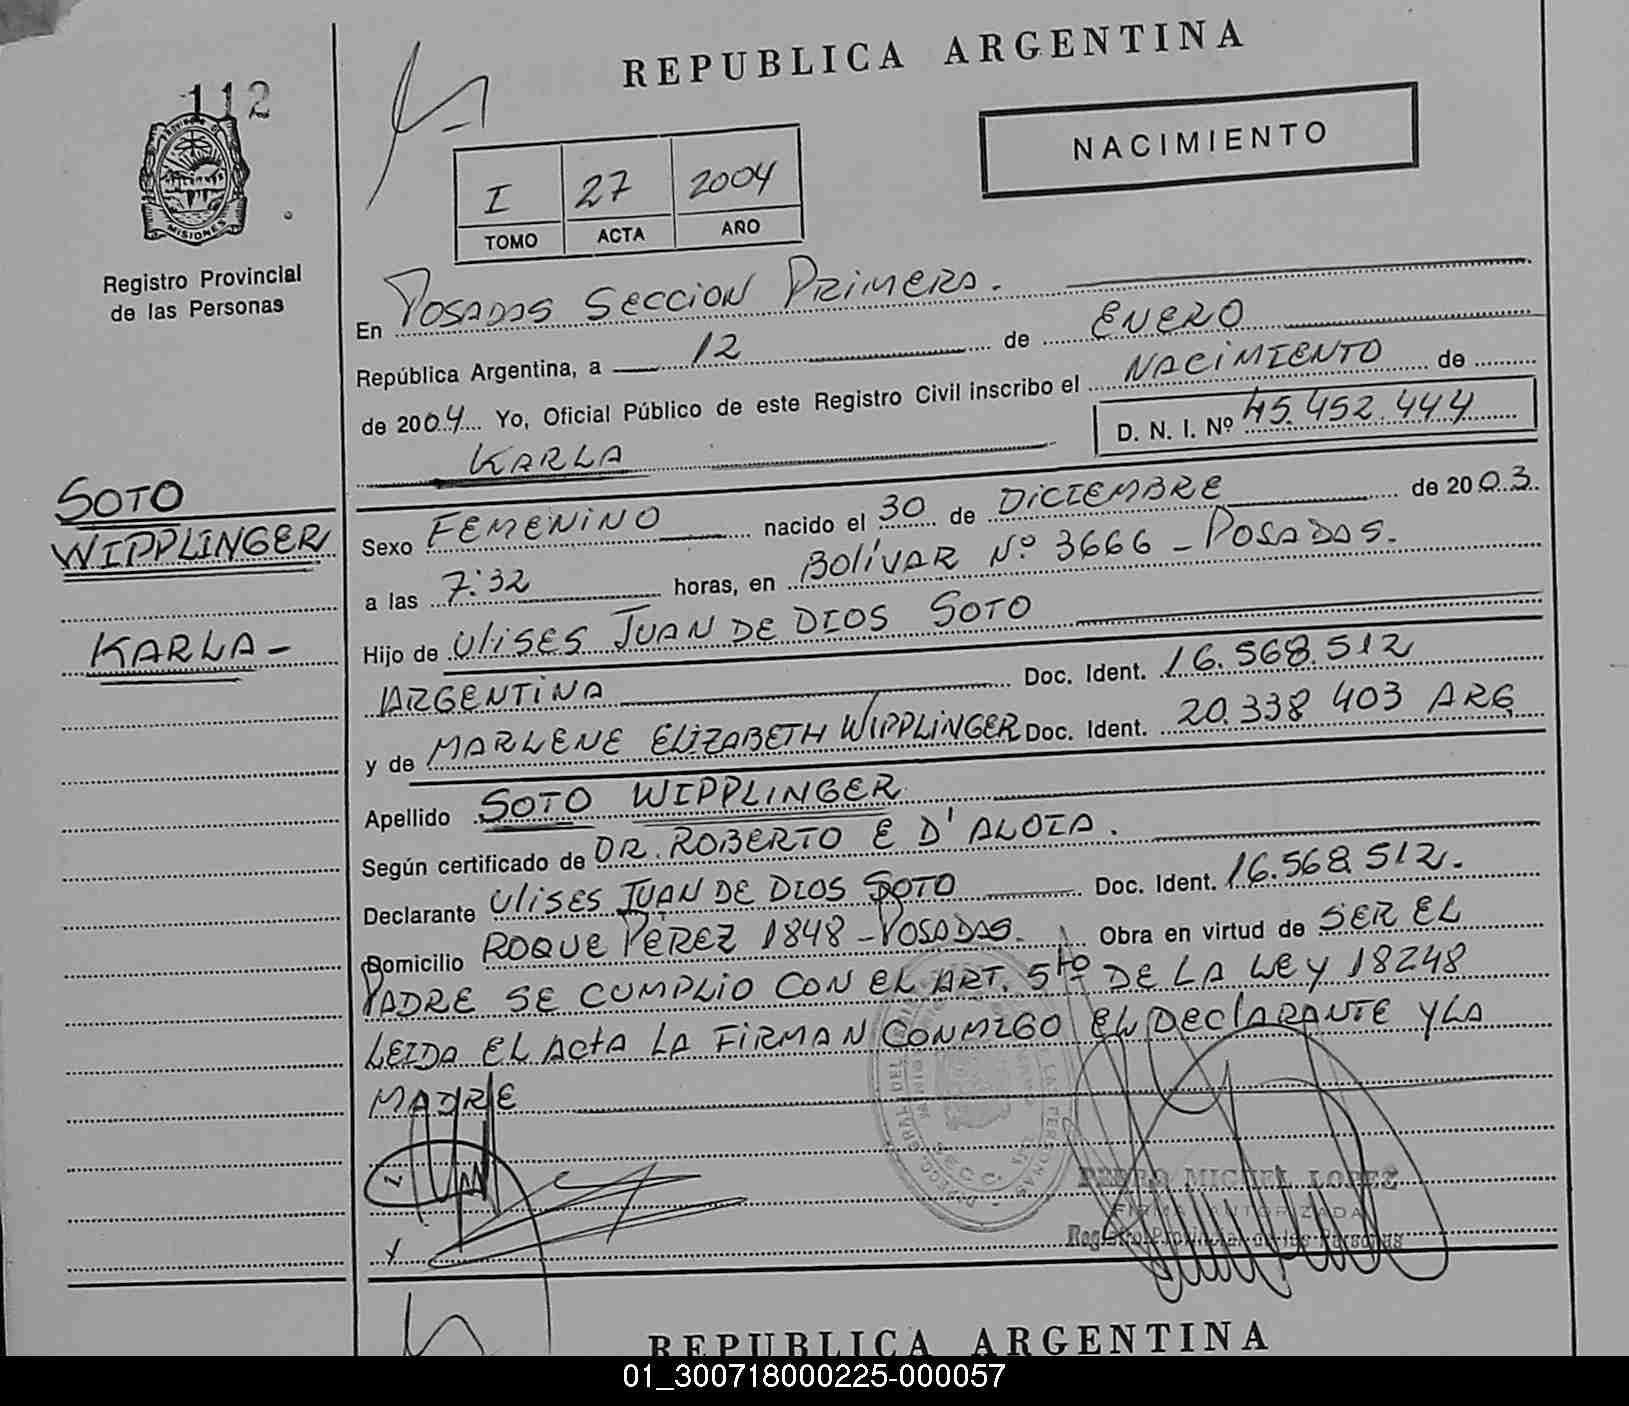 REPUBLICA ARGENTINA
112
NACIMIENTO
I 27 2004
TOMO ACTA AÑO
MISIONES
Registro Provincial
de las Personas
En POSADAS SECCION PRIMERA.
República Argentina, a 12 de ENERO
de 2004 Yo, Oficial Público de este Registro Civil inscribo el NACIMIENTO de
KARLA D. N. I. Nº 45.452.444
SOTO
WIPPLINGER
KARLA -
Sexo FEMENINO nacido el 30 de DICIEMBRE de 2003.
a las 7:32 horas, en BOLÍVAR Nº 3666 - POSADAS.
Hijo de ULISES JUAN DE DIOS SOTO
ARGENTINA Doc. Ident. 16.568.512
y de MARLENE ELIZABETH WIPPLINGER Doc. Ident. 20.338 403 ARG
Apellido SOTO WIPPLINGER
Según certificado de DR. ROBERTO E D'ALOIA.
Declarante ULISES JUAN DE DIOS SOTO Doc. Ident. 16.568.512.
Domicilio ROQUE PEREZ 1848 - POSADAS. Obra en virtud de SER EL
PADRE SE CUMPLIO CON EL ART. 5to DE LA LEY 18248
LEIDA EL ACTA LA FIRMAN CONMIGO EL DECLARANTE Y LA
MADRE
PEDRO MIGUEL LOPEZ
FIRMA AUTORIZADA
Registro Provincial de las Personas
REPUBLICA ARGENTINA
01_300718000225-000057